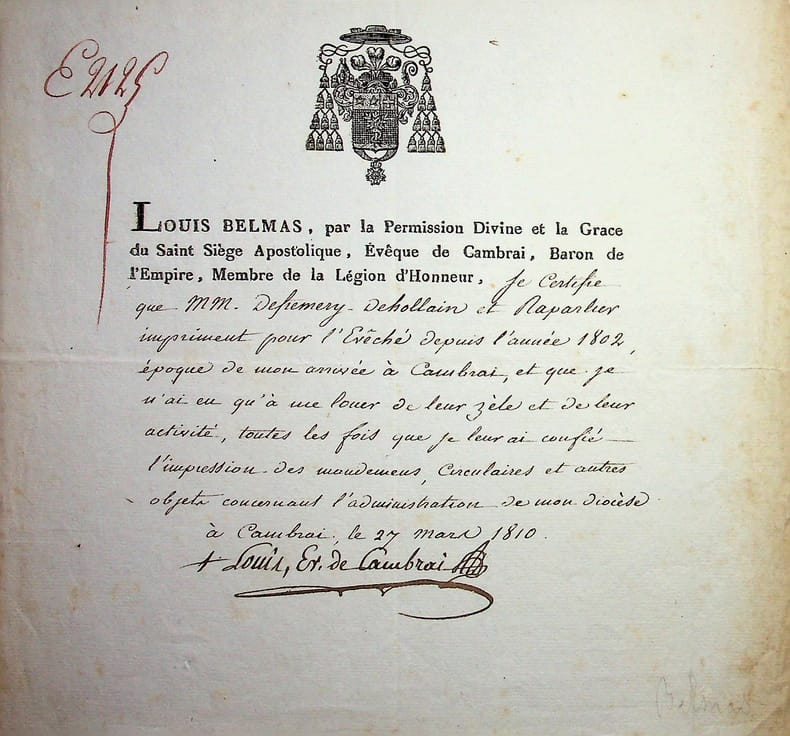 E2125
LOUIS BELMAS, par la Permission Divine et la Grace
du Saint Siège Apostolique, Évêque de Cambrai, Baron de
l'Empire, Membre de la Légion d'Honneur, Je Certifie
que MM. Defremery - Dehollain et Raparlier
impriment pour l'Evêché depuis l'année 1802,
époque de mon arrivée à Cambrai, et que je
n'ai eu qu'à me louer de leur zèle et de leur
activité, toutes les fois que je leur ai confié
l'impression des mandemens, Circulaires et autres
objets concernant l'administration de mon diocèse
à Cambrai, le 27 mars 1810.
+ Louis, Ev. de Cambrai
Belmas